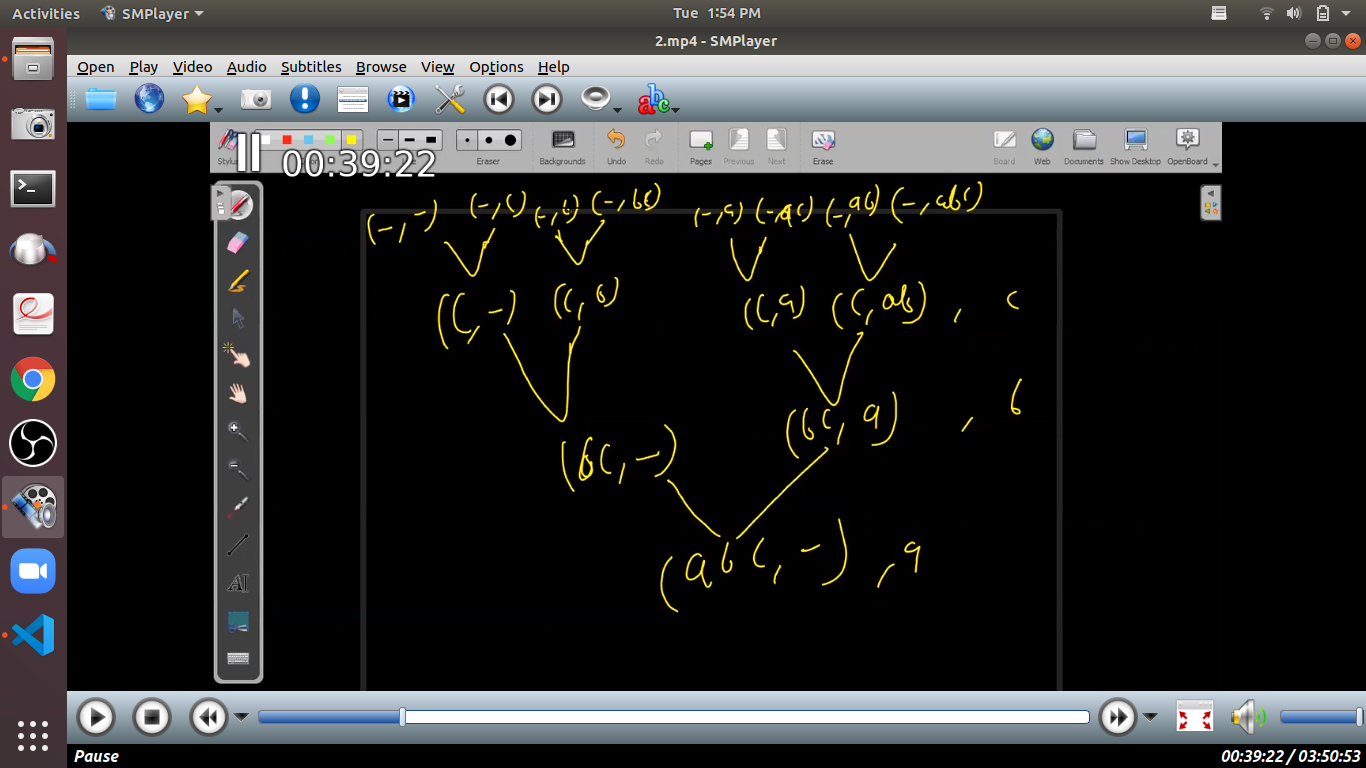 Activities SMPlayer Tue 1:54 PM
2.mp4 - SMPlayer
Open Play Video Audio Subtitles Browse View Options Help
abc
Stylus Eraser Backgrounds Undo Redo Pages Previous Next Erase Board Web Documents Show Desktop OpenBoard
00:39:22
(-,-) (-,c) (-,b) (-,bc) (-,a) (-,ac) (-,ab) (-,abc)
(c,-) (c,b) (c,a) (c,ab) , c
(bc,-) (bc,a) , b
(abc,-) , a
AI
Pause 00:39:22 / 03:50:53